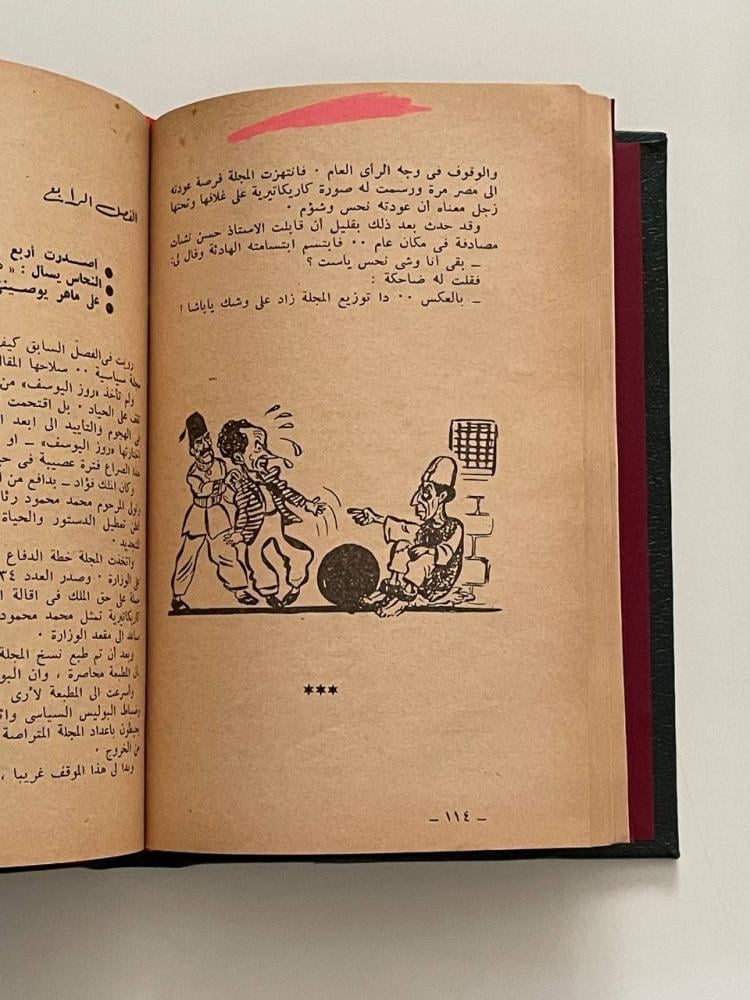 والوقوف فى وجه الرأى العام ٠ فانتهزت المجلة فرصة عودته
الى مصر مرة ورسمت له صورة كاريكاتيرية على غلافها وتحتها
زجل معناه أن عودته نحس وشؤم ٠
وقد حدث بعد ذلك بقليل أن قابلت الاستاذ حسن نشأت
مصادفة فى مكان عام ٠٠ فابتسم ابتسامته الهادئة وقال لى:
ــ بقى أنا وشى نحس ياست ؟
فقلت له ضاحكة :
ــ بالعكس ٠٠ دا توزيع المجلة زاد على وشك ياباشا !
***
ــ ١١٤ ــ
الفصل الرابع
● أصدرت أربع
● النحاس يسأل : «
● على ماهر يوصينى
رويت فى الفصل السابق كيف
مجلة سياسية ٠٠ سلاحها المقال
ولم تأخذ «روز اليوسف» من
تقف على الحياد ٠ بل اقتحمت
فى الهجوم والتأييد الى ابعد
«روز اليوسف» ــ او
هذا الصراع فترة عصيبة فى
وكان الملك فؤاد ــ يدافع من
المرحوم محمد محمود
تعطيل الدستور والحياة
للتجديد ٠
واتخذت المجلة خطة الدفاع
الوزارة ٠ وصدر العدد
على حق الملك فى اقالة
كاريكاتيرية تمثل محمد محمود
الى مقعد الوزارة ٠
وبعد أن تم طبع نسخ المجلة
المطبعة محاصرة ، وان
وأسرعت الى المطبعة لأرى
البوليس السياسى
يحيطون بأعداد المجلة المتراصة
من الخروج ٠
وبدا لى هذا الموقف غريبا ،